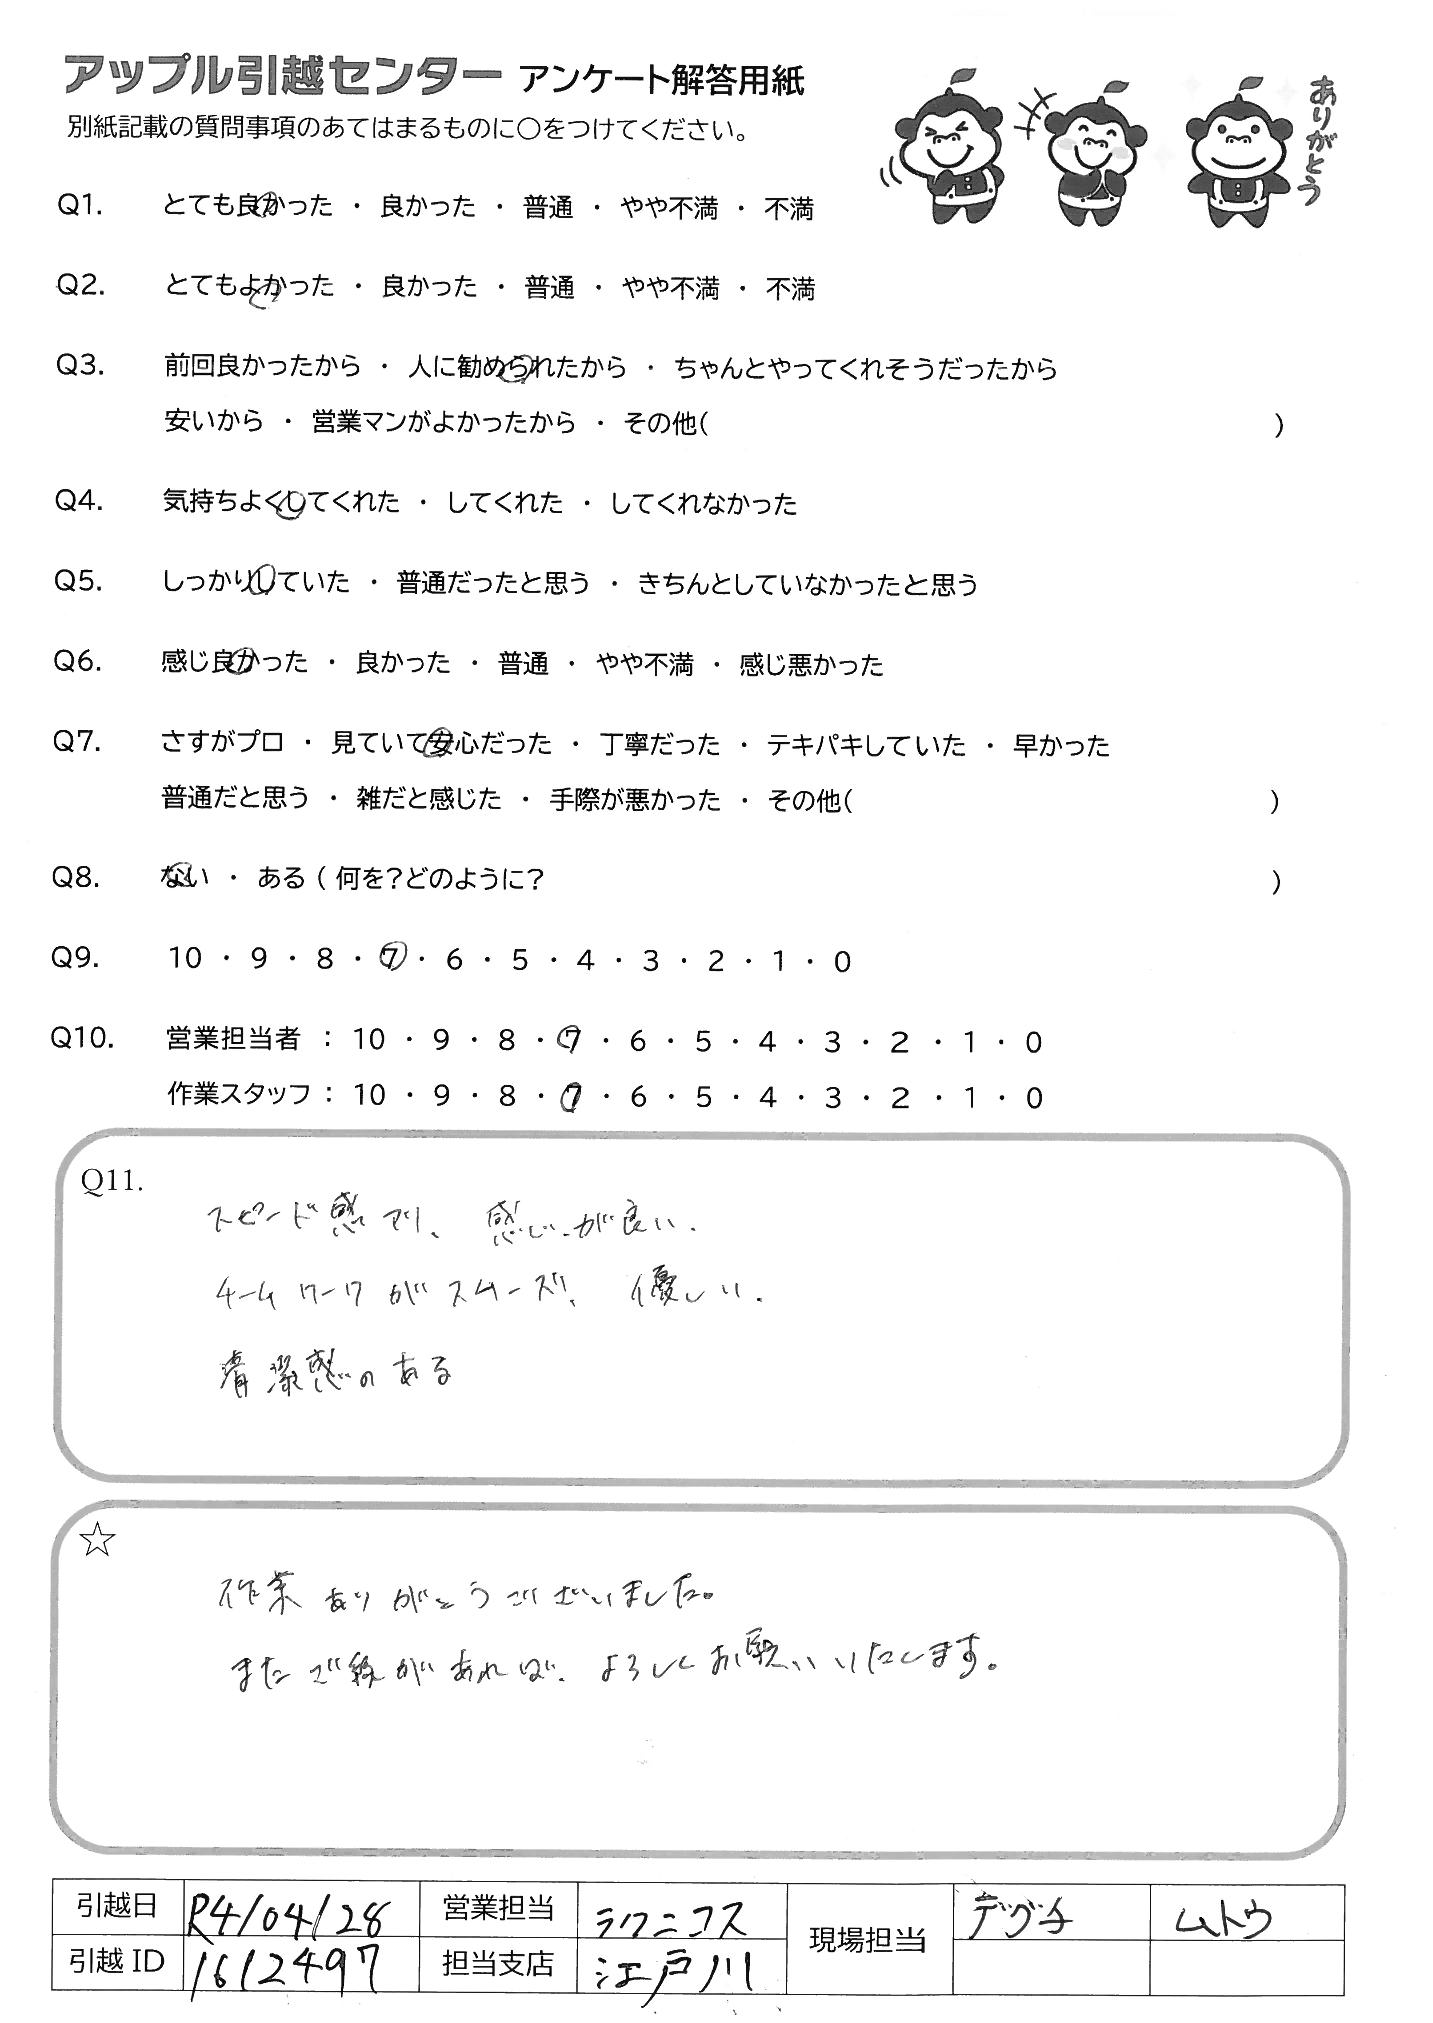 アップル引越センター アンケート解答用紙
別紙記載の質問事項のあてはまるものに〇をつけてください。
ありがとう
Q1. とても良かった ・ 良かった ・ 普通 ・ やや不満 ・ 不満
Q2. とてもよかった ・ 良かった ・ 普通 ・ やや不満 ・ 不満
Q3. 前回良かったから ・ 人に勧められたから ・ ちゃんとやってくれそうだったから
安いから ・ 営業マンがよかったから ・ その他( )
Q4. 気持ちよくしてくれた ・ してくれた ・ してくれなかった
Q5. しっかりしていた ・ 普通だったと思う ・ きちんとしていなかったと思う
Q6. 感じ良かった ・ 良かった ・ 普通 ・ やや不満 ・ 感じ悪かった
Q7. さすがプロ ・ 見ていて安心だった ・ 丁寧だった ・ テキパキしていた ・ 早かった
普通だと思う ・ 雑だと感じた ・ 手際が悪かった ・ その他( )
Q8. ない ・ ある ( 何を?どのように? )
Q9. 10 ・ 9 ・ 8 ・ 7 ・ 6 ・ 5 ・ 4 ・ 3 ・ 2 ・ 1 ・ 0
Q10. 営業担当者 : 10 ・ 9 ・ 8 ・ 7 ・ 6 ・ 5 ・ 4 ・ 3 ・ 2 ・ 1 ・ 0
作業スタッフ : 10 ・ 9 ・ 8 ・ 7 ・ 6 ・ 5 ・ 4 ・ 3 ・ 2 ・ 1 ・ 0
Q11.
スピード感アリ、 感じが良い.
チームワークがスムーズ、 優しい.
清潔感のある
☆
作業ありがとうございました。
またご縁があれば、よろしくお願いいたします。
引越日 R4/04/28 営業担当 ラクニコス 現場担当 デグチ ムトウ
引越ID 1612497 担当支店 江戸川